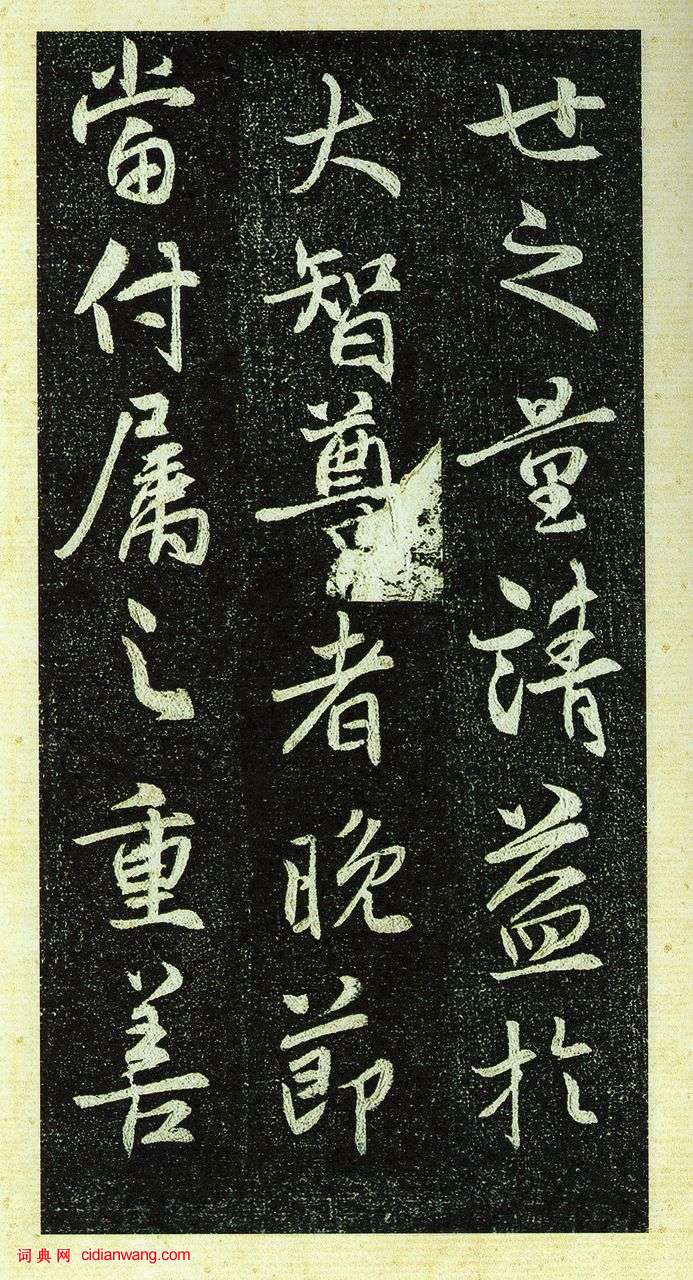 世之量請益於
大智尊者晚節
當付属之重善
词典网 cidianwang.com